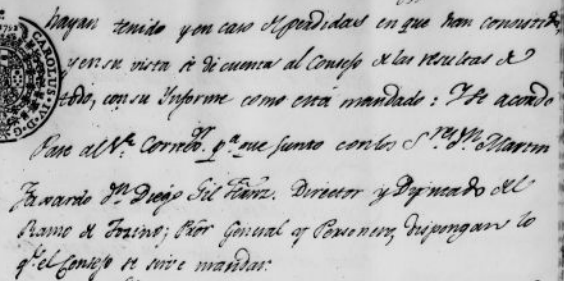 hayan tenido y en caso de perdidas en que han consistido,
y en su vista se dé cuenta al Consejo de las resultas de
todo, con su Ynforme como está mandado: Y se acordo
Pase al Sr. Correxor. pa. que junto con los Sres. Dn. Martin
Faxardo Dn. Diego Gil Fernz. Director y Diputado del
Ramo de Tozino; Pror. General y Personero, dispongan lo
qe. el Consejo se sirve mandar.
CAROLUS IV D G